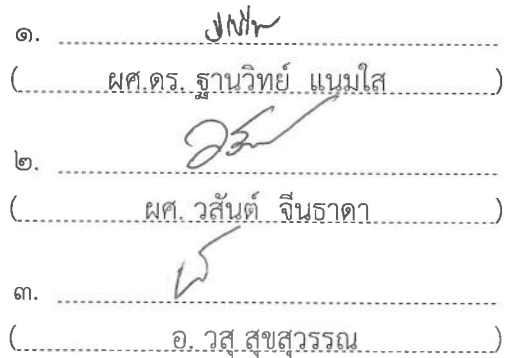 ๑.
( ผศ.ดร. ฐานวิทย์ แนมใส )
๒.
( ผศ. วสันต์ จีนธาดา )
๓.
( อ. วสุ สุขสุวรรณ )